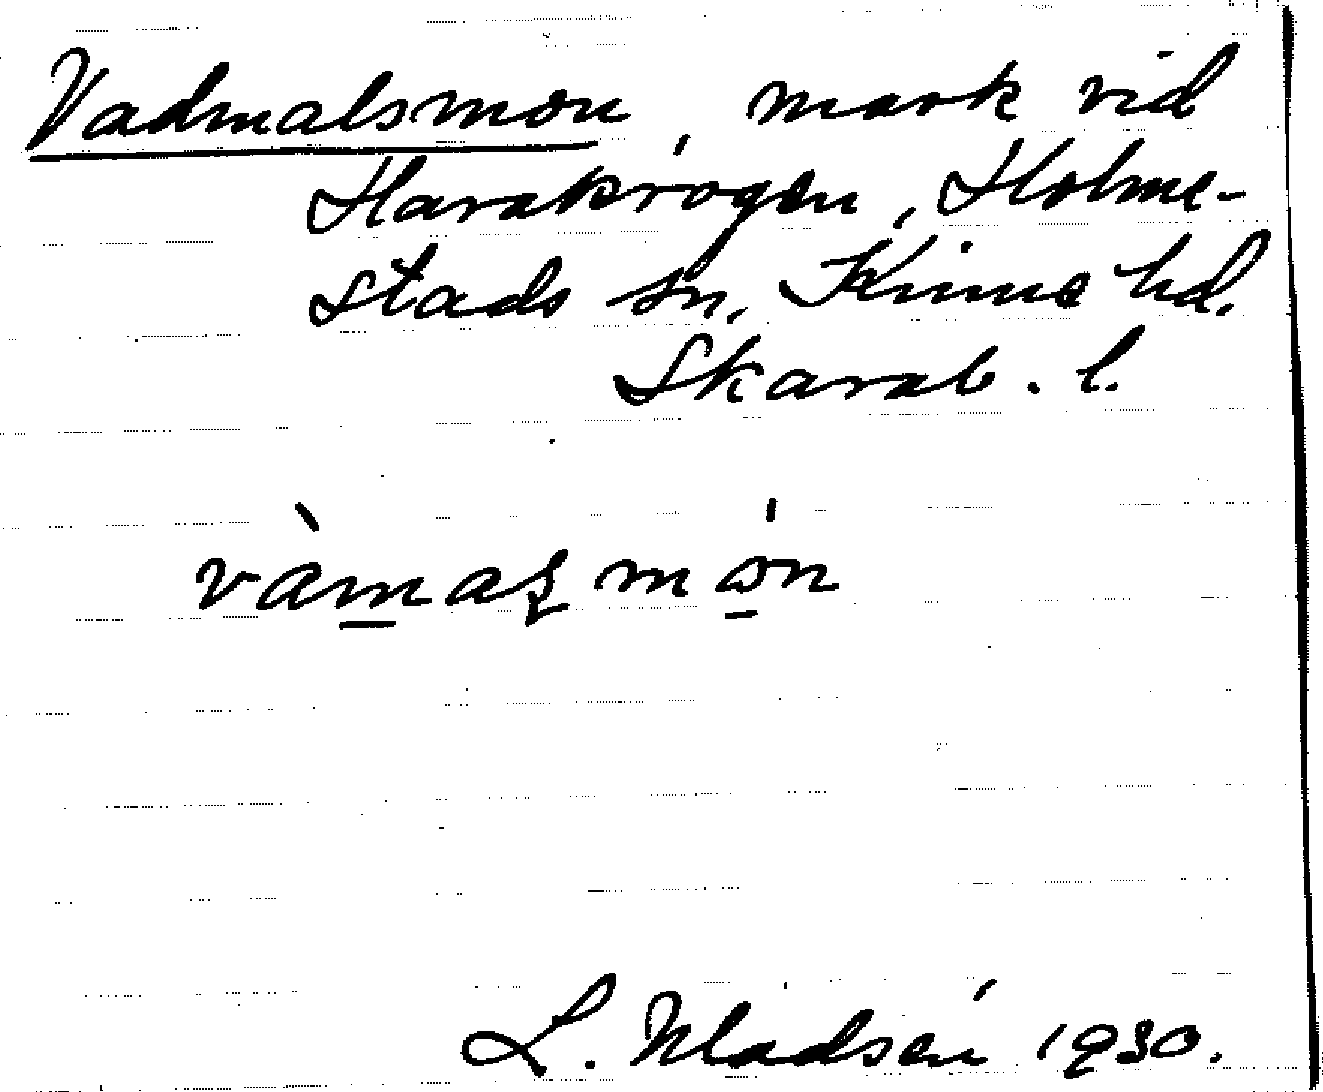 Vadmalsmon, mark vid
Harakrogen, Holme-
stads sn, Kinne hd.
Skarab. l.
L. 1930.